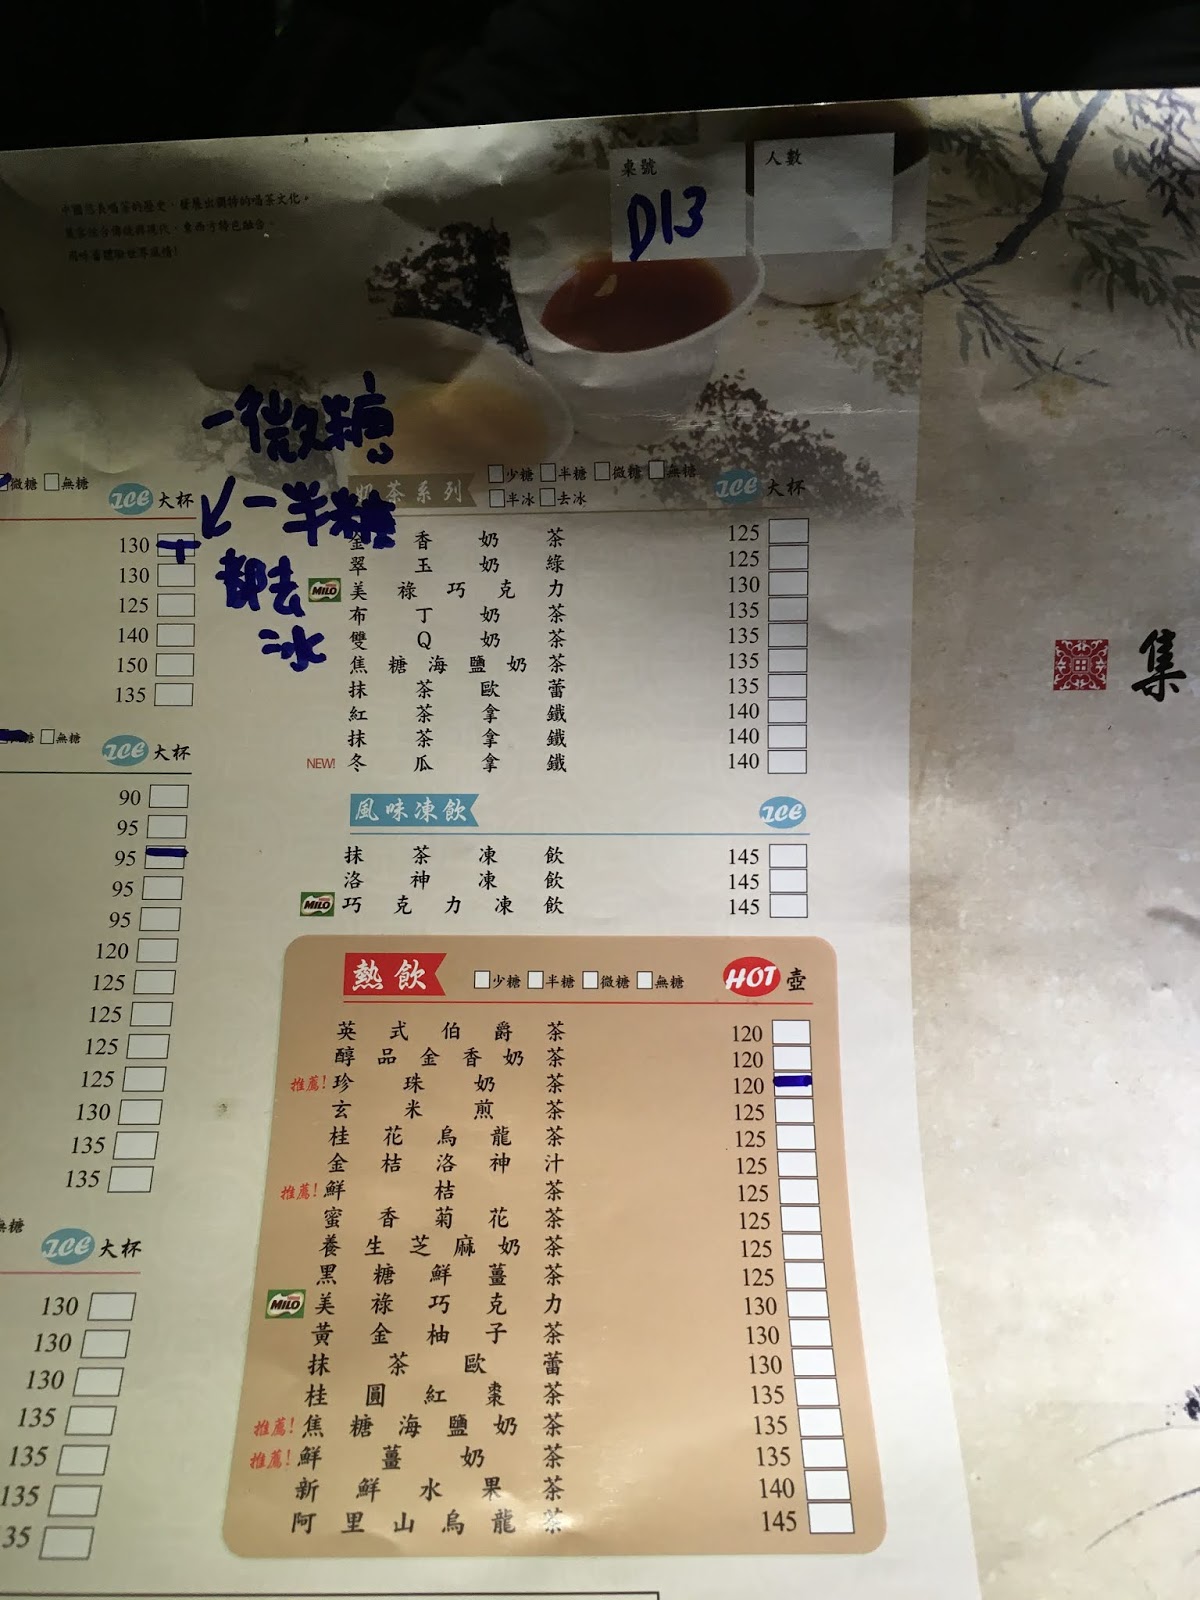 桌號
人數
D13
中國悠長喝茶的歷史，發展出獨特的喝茶文化。
用味蕾體驗世界風情!
一微糖
一半糖
都去
冰
微糖 無糖
ICE 大杯
130
130
125
140
150
135
無糖
ICE 大杯
90
95
95
95
95
120
125
125
125
125
130
135
135
無糖
ICE 大杯
130
130
130
135
135
135
135
奶茶系列 少糖 半糖 微糖 無糖 ICE 大杯
半冰 去冰
金香奶茶 125
翠玉奶綠 125
MILO 美祿巧克力 130
布丁奶茶 135
雙Q奶茶 135
焦糖海鹽奶茶 135
抹茶歐蕾 135
紅茶拿鐵 140
抹茶拿鐵 140
NEW! 冬瓜拿鐵 140
風味凍飲 ICE
抹茶凍飲 145
洛神凍飲 145
MILO 巧克力凍飲 145
熱飲 少糖 半糖 微糖 無糖 HOT 壺
英式伯爵茶 120
醇品金香奶茶 120
推薦! 珍珠奶茶 120
玄米煎茶 125
桂花烏龍茶 125
金桔洛神汁 125
推薦! 鮮桔茶 125
蜜香菊花茶 125
養生芝麻奶茶 125
黑糖鮮薑茶 125
MILO 美祿巧克力 130
黃金柚子茶 130
抹茶歐蕾 130
桂圓紅棗茶 135
推薦! 焦糖海鹽奶茶 135
推薦! 鮮薑奶茶 135
新鮮水果茶 140
阿里山烏龍茶 145
集